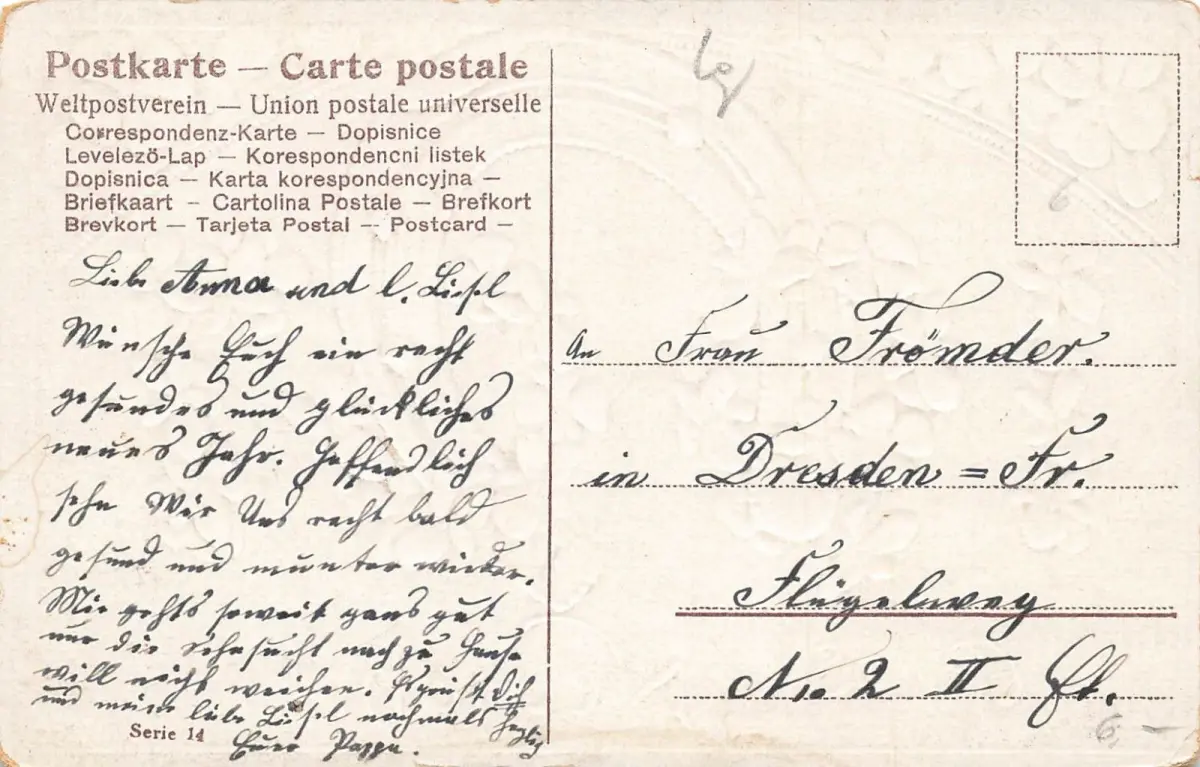 Postkarte — Carte postale
Weltpostverein — Union postale universelle
Correspondenz-Karte — Dopisnice
Levelező-Lap — Korespondencni listek
Dopisnica — Karta korespondencyjna —
Briefkaart – Cartolina Postale – Brefkort
Brevkort — Tarjeta Postal — Postcard —
Liebe Anna und l. Liesel
Wünsche Euch ein recht
gesundes und glückliches
neues Jahr. Hoffendlich
sehn Wir Uns recht bald
gesund und munter wieder.
Mir gehts soweit ganz gut
nur die Sehnsucht nach zu Hause
will nicht weichen. Es grüßt Dich
und meine liebe Liesel nochmals herzlich
Euer Pappa.
Serie 14
An Frau Frömder.
in Dresden = Fr.
Flügelweg
No. 2 II Et.
6
6,—